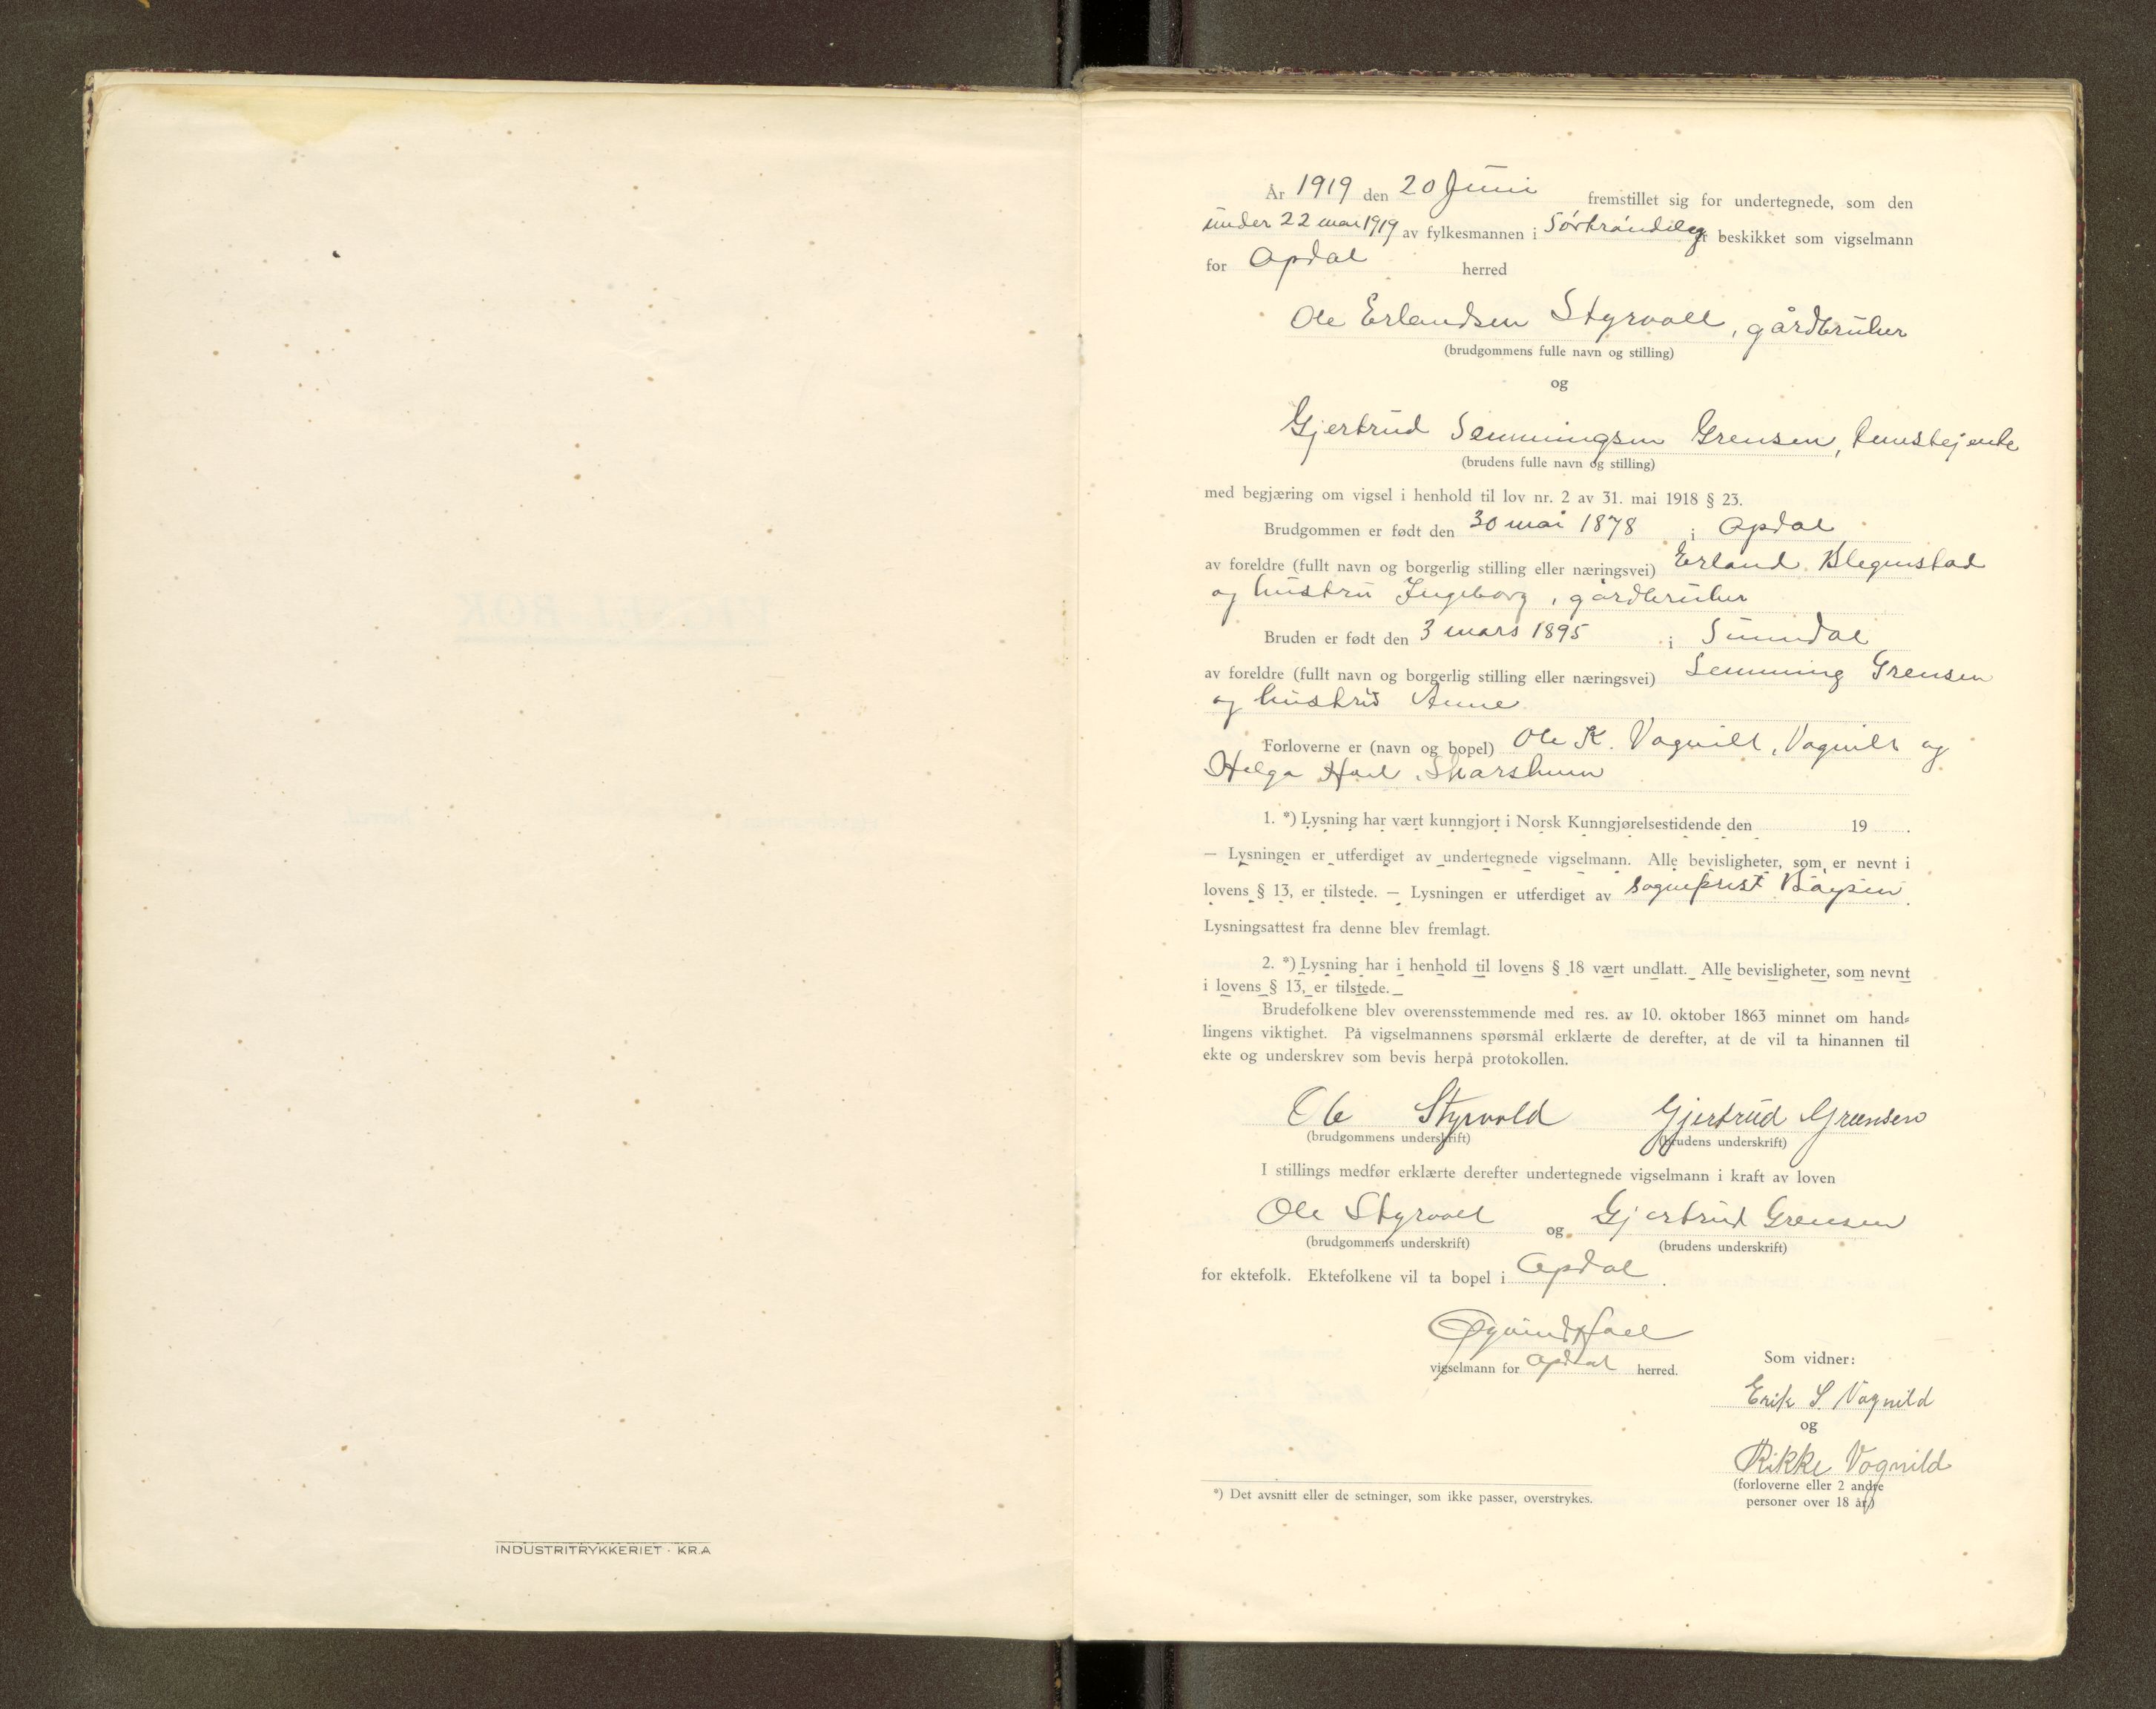 INDUSTRITRYKKERIET · KR.A
År 1919 den 20 Juni fremstillet sig for undertegnede, som den
under 22 mai 1919 av fylkesmannen i Sörtröndelag er beskikket som vigselmann
for Opdal herred
Ole Erlandsen Styrvoll, gårdbruker
(brudgommens fulle navn og stilling)
og
Gjertrud Semmingsen Grensen,
(brudens fulle navn og stilling)
med begjæring om vigsel i henhold til lov nr. 2 av 31. mai 1918 § 23.
Brudgommen er født den 30 mai 1878 i Opdal
av foreldre (fullt navn og borgerlig stilling eller næringsvei) Erland
og hustru Ingeborg, gårdbruker
Bruden er født den 3 mars 1895 i Sunndal
av foreldre (fullt navn og borgerlig stilling eller næringsvei) Semming Grensen
og hustru Anne
Forloverne er (navn og bopel) Ole K. Vognill, Vognill og
Helga Hoel,
1. *) Lysning har vært kunngjort i Norsk Kunngjørelsestidende den 19 .
— Lysningen er utferdiget av undertegnede vigselmann. Alle bevisligheter, som er nevnt i
lovens § 13, er tilstede. — Lysningen er utferdiget av sogneprest
Lysningsattest fra denne blev fremlagt.
2. *) Lysning har i henhold til lovens § 18 vært undlatt. Alle bevisligheter, som nevnt
i lovens § 13, er tilstede.
Brudefolkene blev overensstemmende med res. av 10. oktober 1863 minnet om hand-
lingens viktighet. På vigselmannens spørsmål erklærte de derefter, at de vil ta hinannen til
ekte og underskrev som bevis herpå protokollen.
Ole Styrvold Gjertrud Grensen
(brudgommens underskrift) (brudens underskrift)
I stillings medfør erklærte derefter undertegnede vigselmann i kraft av loven
Ole Styrvoll og Gjertrud Grensen
(brudgommens underskrift) (brudens underskrift)
for ektefolk. Ektefolkene vil ta bopel i Opdal.
Øyvind Hoel
vigselmann for Opdal herred.
Som vidner:
Erik S. Vognild
og
Rikke Vognild
(forloverne eller 2 andre
personer over 18 år)
*) Det avsnitt eller de setninger, som ikke passer, overstrykes.